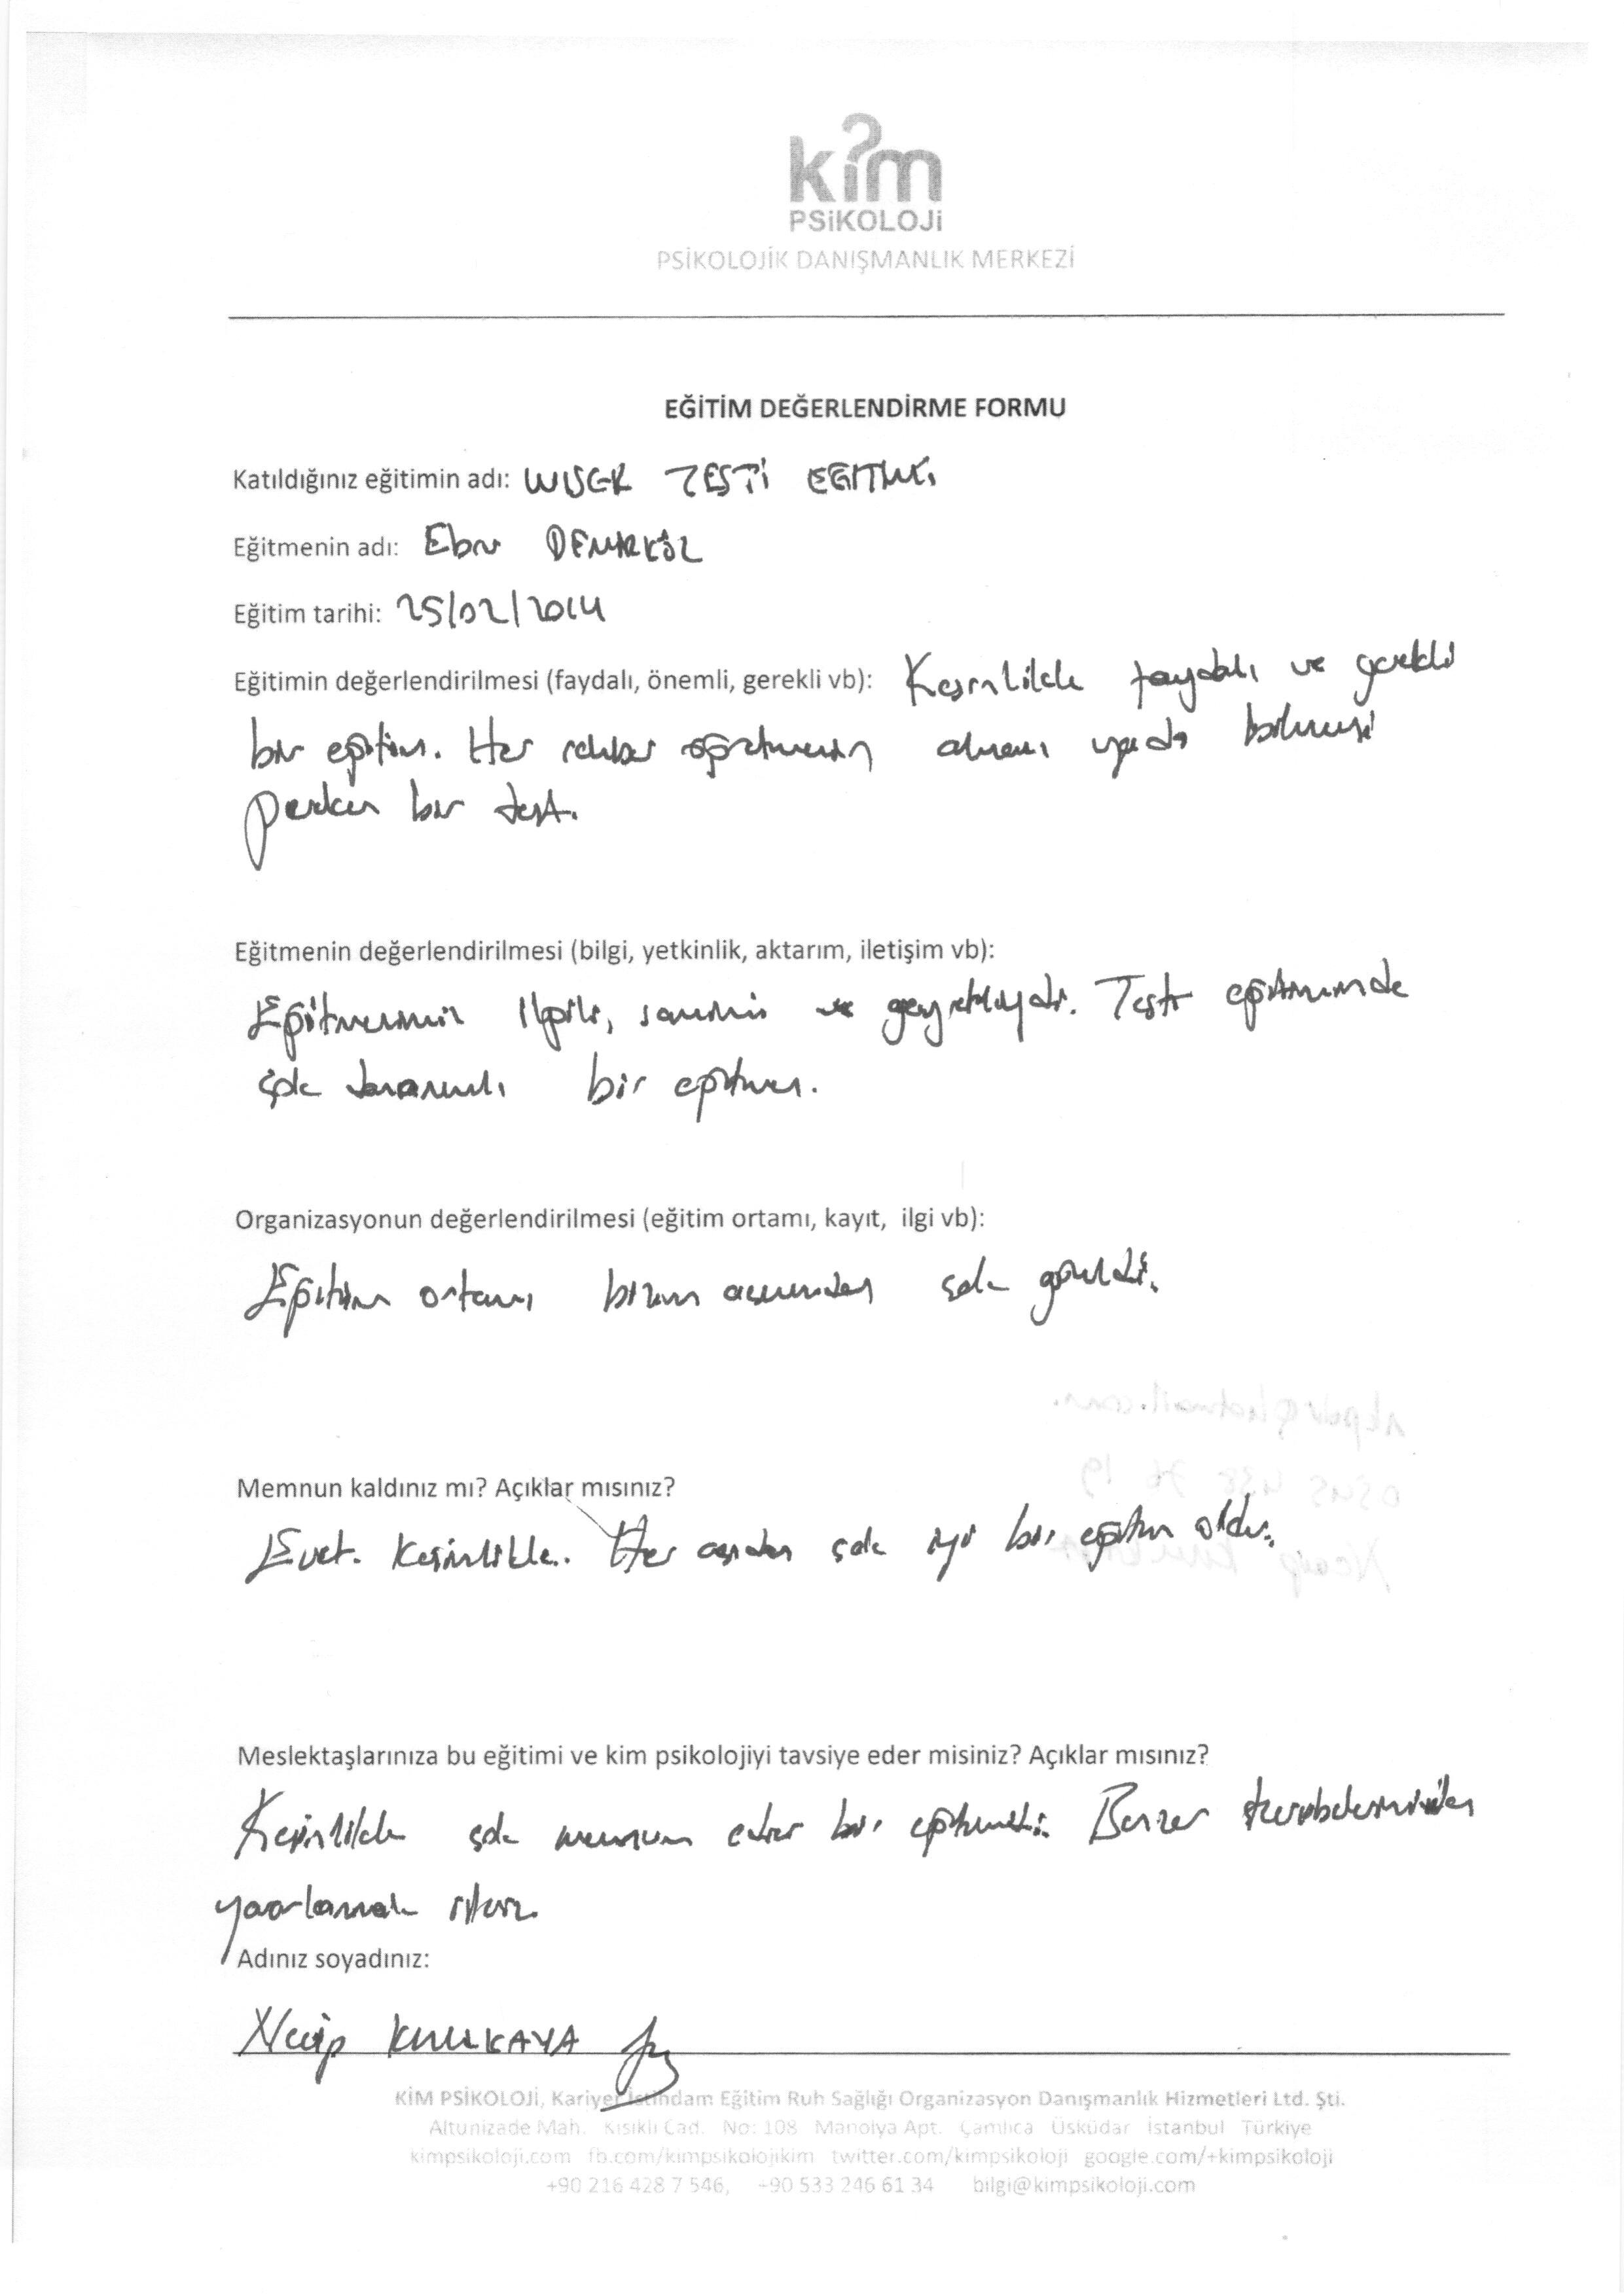 kim
PSiKOLOJi
PSİKOLOJİK DANIŞMANLIK MERKEZİ
EĞİTİM DEĞERLENDİRME FORMU
Katıldığınız eğitimin adı: WISCR TESTİ EĞİTİMİ
Eğitmenin adı: Ebru DEMİRKÖZ
Eğitim tarihi: 25/02/2014
Eğitimin değerlendirilmesi (faydalı, önemli, gerekli vb): Kesinlikle faydalı ve gerekli
bir eğitim. Her rehber öğretmenin alması ya da bilmesi
gereken bir test.
Eğitmenin değerlendirilmesi (bilgi, yetkinlik, aktarım, iletişim vb):
Eğitmenimiz ilgili, samimi ve gayretliydi. Test eğitiminde
çok donanımlı bir eğitmen.
Organizasyonun değerlendirilmesi (eğitim ortamı, kayıt, ilgi vb):
Eğitim ortamı bizim açımızdan çok güzeldi.
Memnun kaldınız mı? Açıklar mısınız?
Evet. Kesinlikle. Her açıdan çok iyi bir eğitim oldu.
Meslektaşlarınıza bu eğitimi ve kim psikolojiyi tavsiye eder misiniz? Açıklar mısınız?
Kesinlikle çok memnun eden bir eğitimdi. Benzer
yararlanmak isteriz
Adınız soyadınız:
Necip
KİM PSİKOLOJİ, Kariyer İstihdam Eğitim Ruh Sağlığı Organizasyon Danışmanlık Hizmetleri Ltd. Şti.
Altunizade Mah. Kısıklı Cad. No: 108 Manolya Apt. Çamlıca Üsküdar İstanbul Türkiye
kimpsikoloji.com fb.com/kimpsikolojikim twitter.com/kimpsikoloji google.com/+kimpsikoloji
+90 216 428 7 546, +90 533 246 61 34 bilgi@kimpsikoloji.com